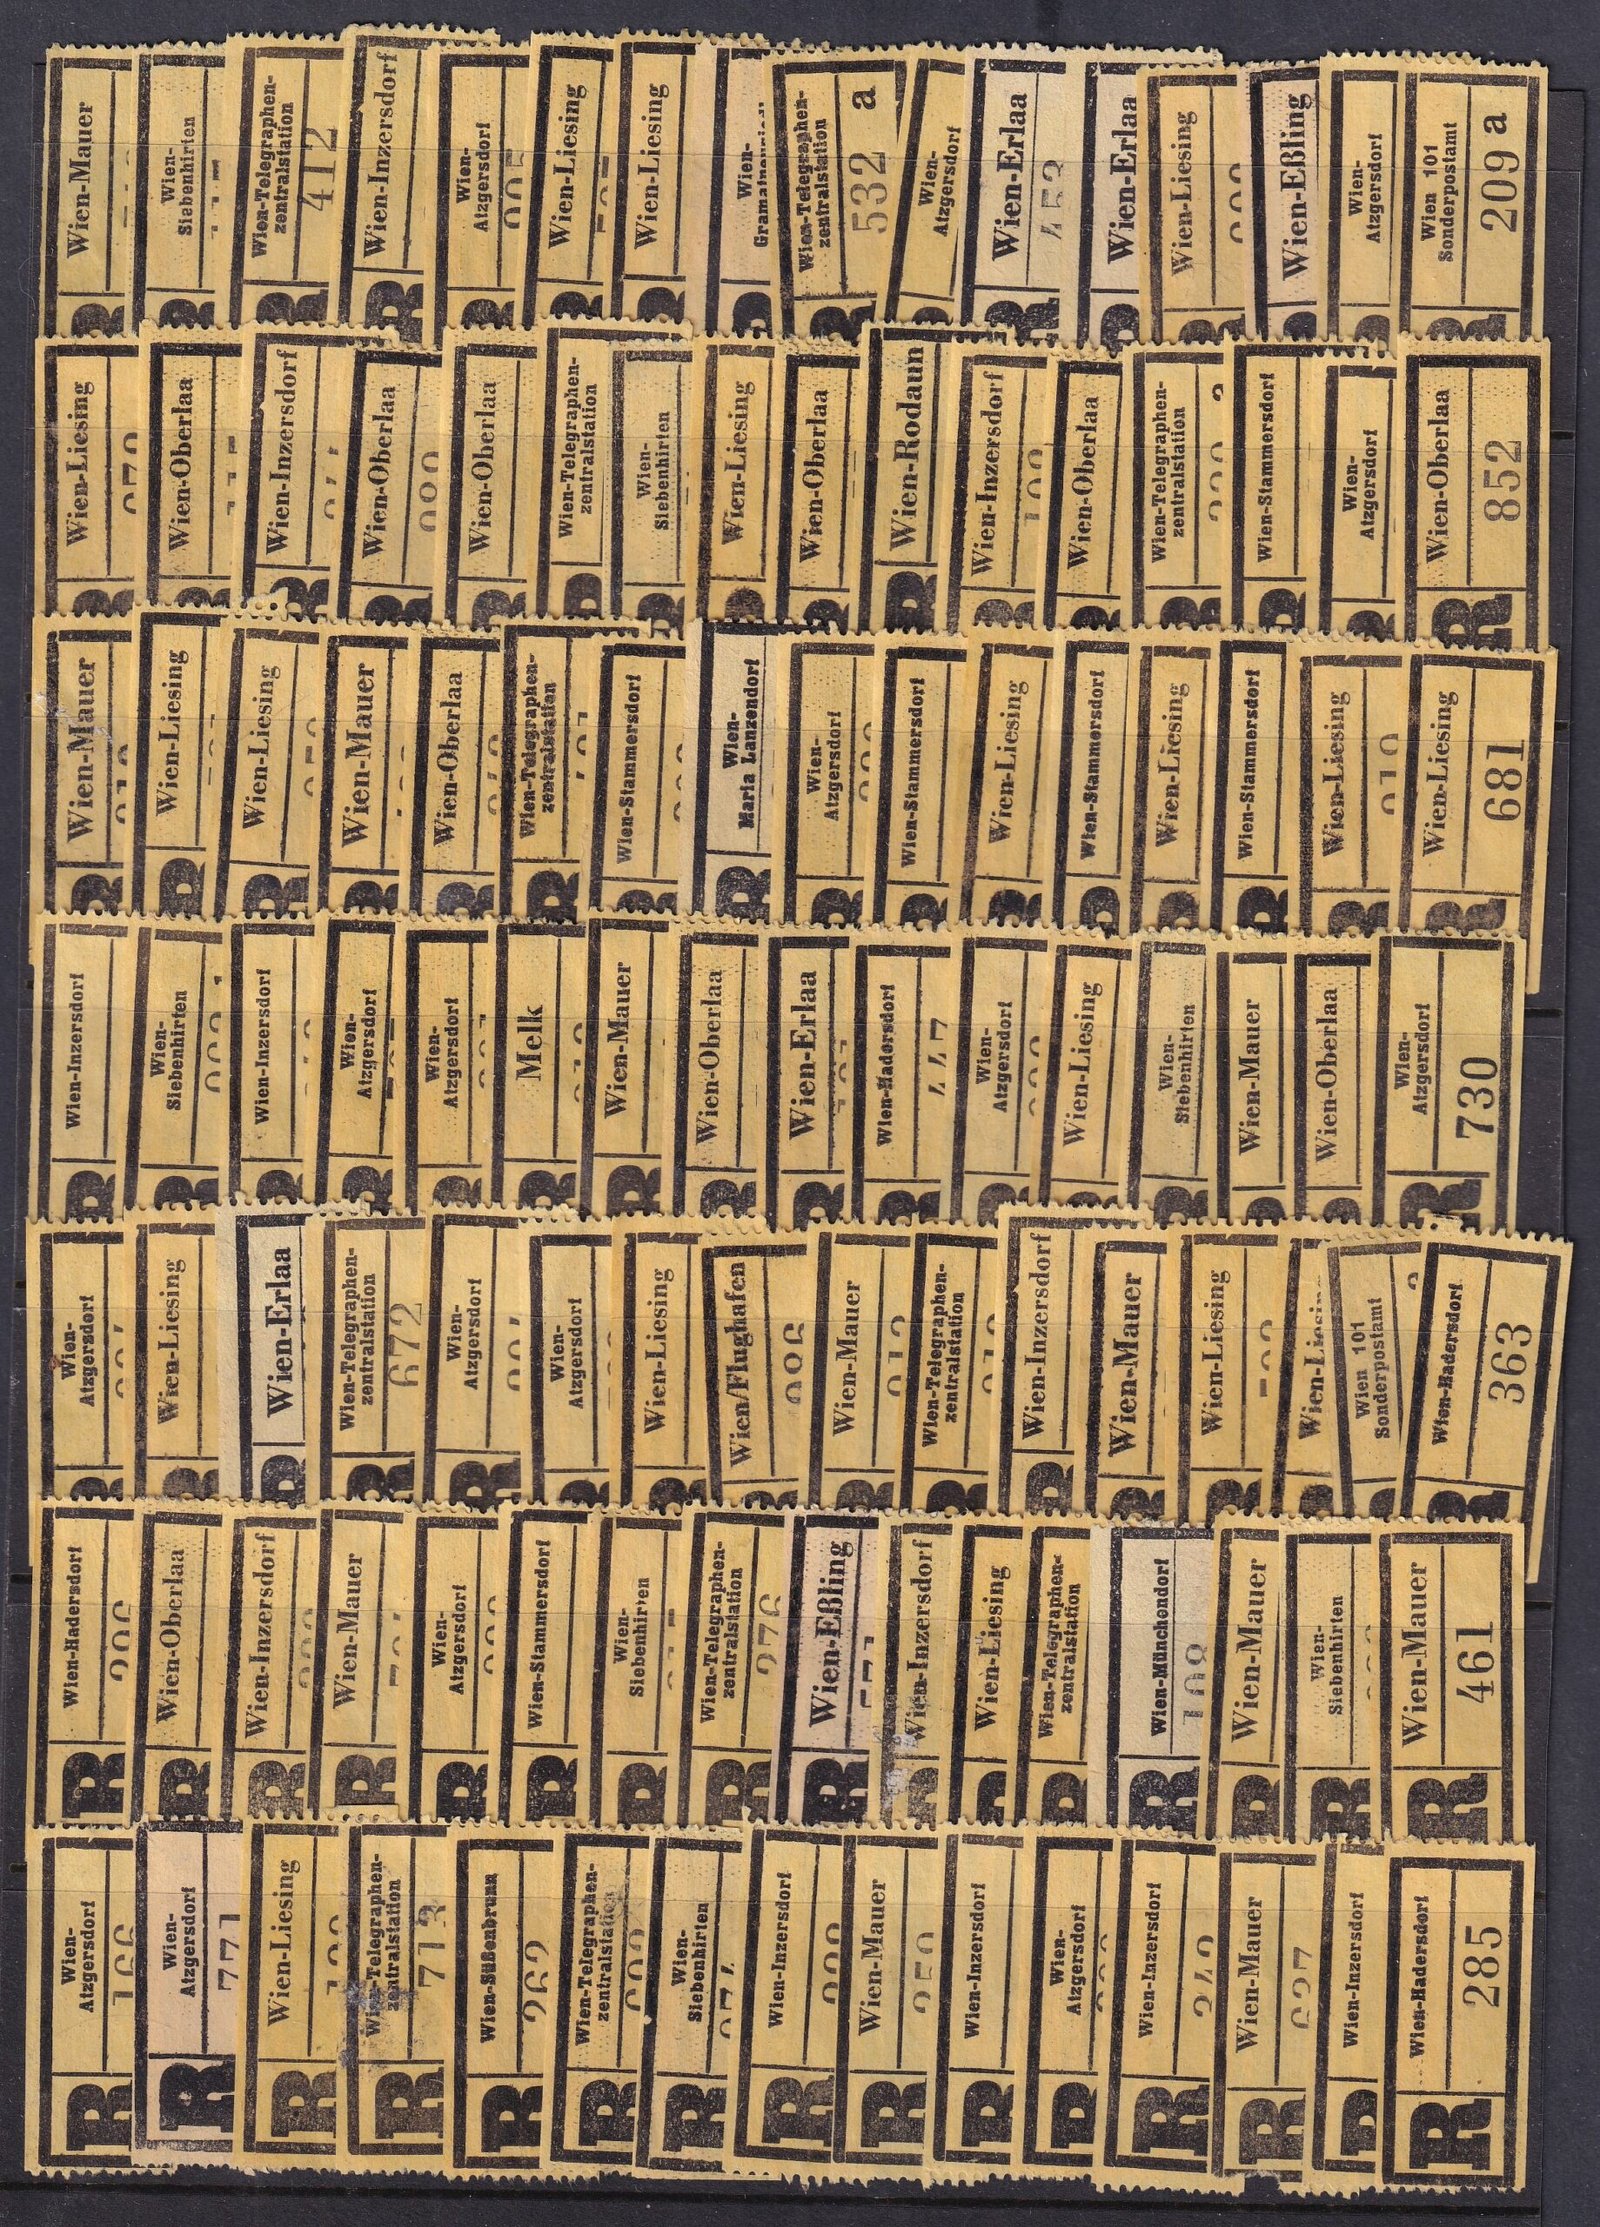 Wien-Mauer
R
Wien-
Siebenhirten
R
Wien-Telegraphen-
zentralstation
412
R
Wien-Inzersdorf
R
Wien-
Atzgersdorf
R
Wien-Liesing
R
Wien-Liesing
R
Wien-
R
Wien-Telegraphen-
zentralstation
532 a
R
Wien-
Atzgersdorf
R
Wien-Erlaa
453
R
Wien-Erlaa
R
Wien-Liesing
R
Wien-Eßling
R
Wien-
Atzgersdorf
R
Wien 101
Sonderpostamt
209 a
R
Wien-Liesing
R
Wien-Oberlaa
R
Wien-Inzersdorf
R
Wien-Oberlaa
R
Wien-Oberlaa
R
Wien-Telegraphen-
zentralstation
R
Wien-
Siebenhirten
R
Wien-Liesing
R
Wien-Oberlaa
R
Wien-Rodaun
R
Wien-Inzersdorf
R
Wien-Oberlaa
R
Wien-Telegraphen-
zentralstation
R
Wien-Stammersdorf
R
Wien-
Atzgersdorf
R
Wien-Oberlaa
852
R
Wien-Mauer
R
Wien-Liesing
R
Wien-Liesing
R
Wien-Mauer
R
Wien-Oberlaa
R
Wien-Telegraphen-
zentralstation
R
Wien-Stammersdorf
R
Wien-
Maria Lanzendorf
R
Wien-
Atzgersdorf
R
Wien-Stammersdorf
R
Wien-Liesing
R
Wien-Stammersdorf
R
Wien-Liesing
R
Wien-Stammersdorf
R
Wien-Liesing
R
Wien-Liesing
681
R
Wien-Inzersdorf
R
Wien-
Siebenhirten
R
Wien-Inzersdorf
R
Wien-
Atzgersdorf
R
Wien-
Atzgersdorf
R
Melk
R
Wien-Mauer
R
Wien-Oberlaa
R
Wien-Erlaa
R
Wien-Hadersdorf
447
R
Wien-
Atzgersdorf
R
Wien-Liesing
R
Wien-
Siebenhirten
R
Wien-Mauer
R
Wien-Oberlaa
R
Wien-
Atzgersdorf
730
R
Wien-
Atzgersdorf
R
Wien-Liesing
R
Wien-Erlaa
R
Wien-Telegraphen-
zentralstation
672
R
Wien-
Atzgersdorf
R
Wien-
Atzgersdorf
R
Wien-Liesing
R
Wien/Flughafen
986
R
Wien-Mauer
R
Wien-Telegraphen-
zentralstation
R
Wien-Inzersdorf
R
Wien-Mauer
R
Wien-Liesing
R
Wien-Liesing
R
Wien 101
Sonderpostamt
R
Wien-Hadersdorf
363
R
Wien-Hadersdorf
R
Wien-Oberlaa
R
Wien-Inzersdorf
R
Wien-Mauer
R
Wien-
Atzgersdorf
R
Wien-Stammersdorf
R
Wien-
Siebenhirten
R
Wien-Telegraphen-
zentralstation
276
R
Wien-Eßling
R
Wien-Inzersdorf
R
Wien-Liesing
R
Wien-Telegraphen-
zentralstation
R
Wien-Münchendorf
108
R
Wien-Mauer
R
Wien-
Siebenhirten
R
Wien-Mauer
461
R
Wien-
Atzgersdorf
166
R
Wien-
Atzgersdorf
771
R
Wien-Liesing
R
Wien-Telegraphen-
zentralstation
713
R
Wien-Süßenbrunn
262
R
Wien-Telegraphen-
zentralstation
R
Wien-
Siebenhirten
R
Wien-Inzersdorf
R
Wien-Mauer
R
Wien-Inzersdorf
R
Wien-
Atzgersdorf
R
Wien-Inzersdorf
R
Wien-Mauer
627
R
Wien-Inzersdorf
R
Wien-Hadersdorf
285
R